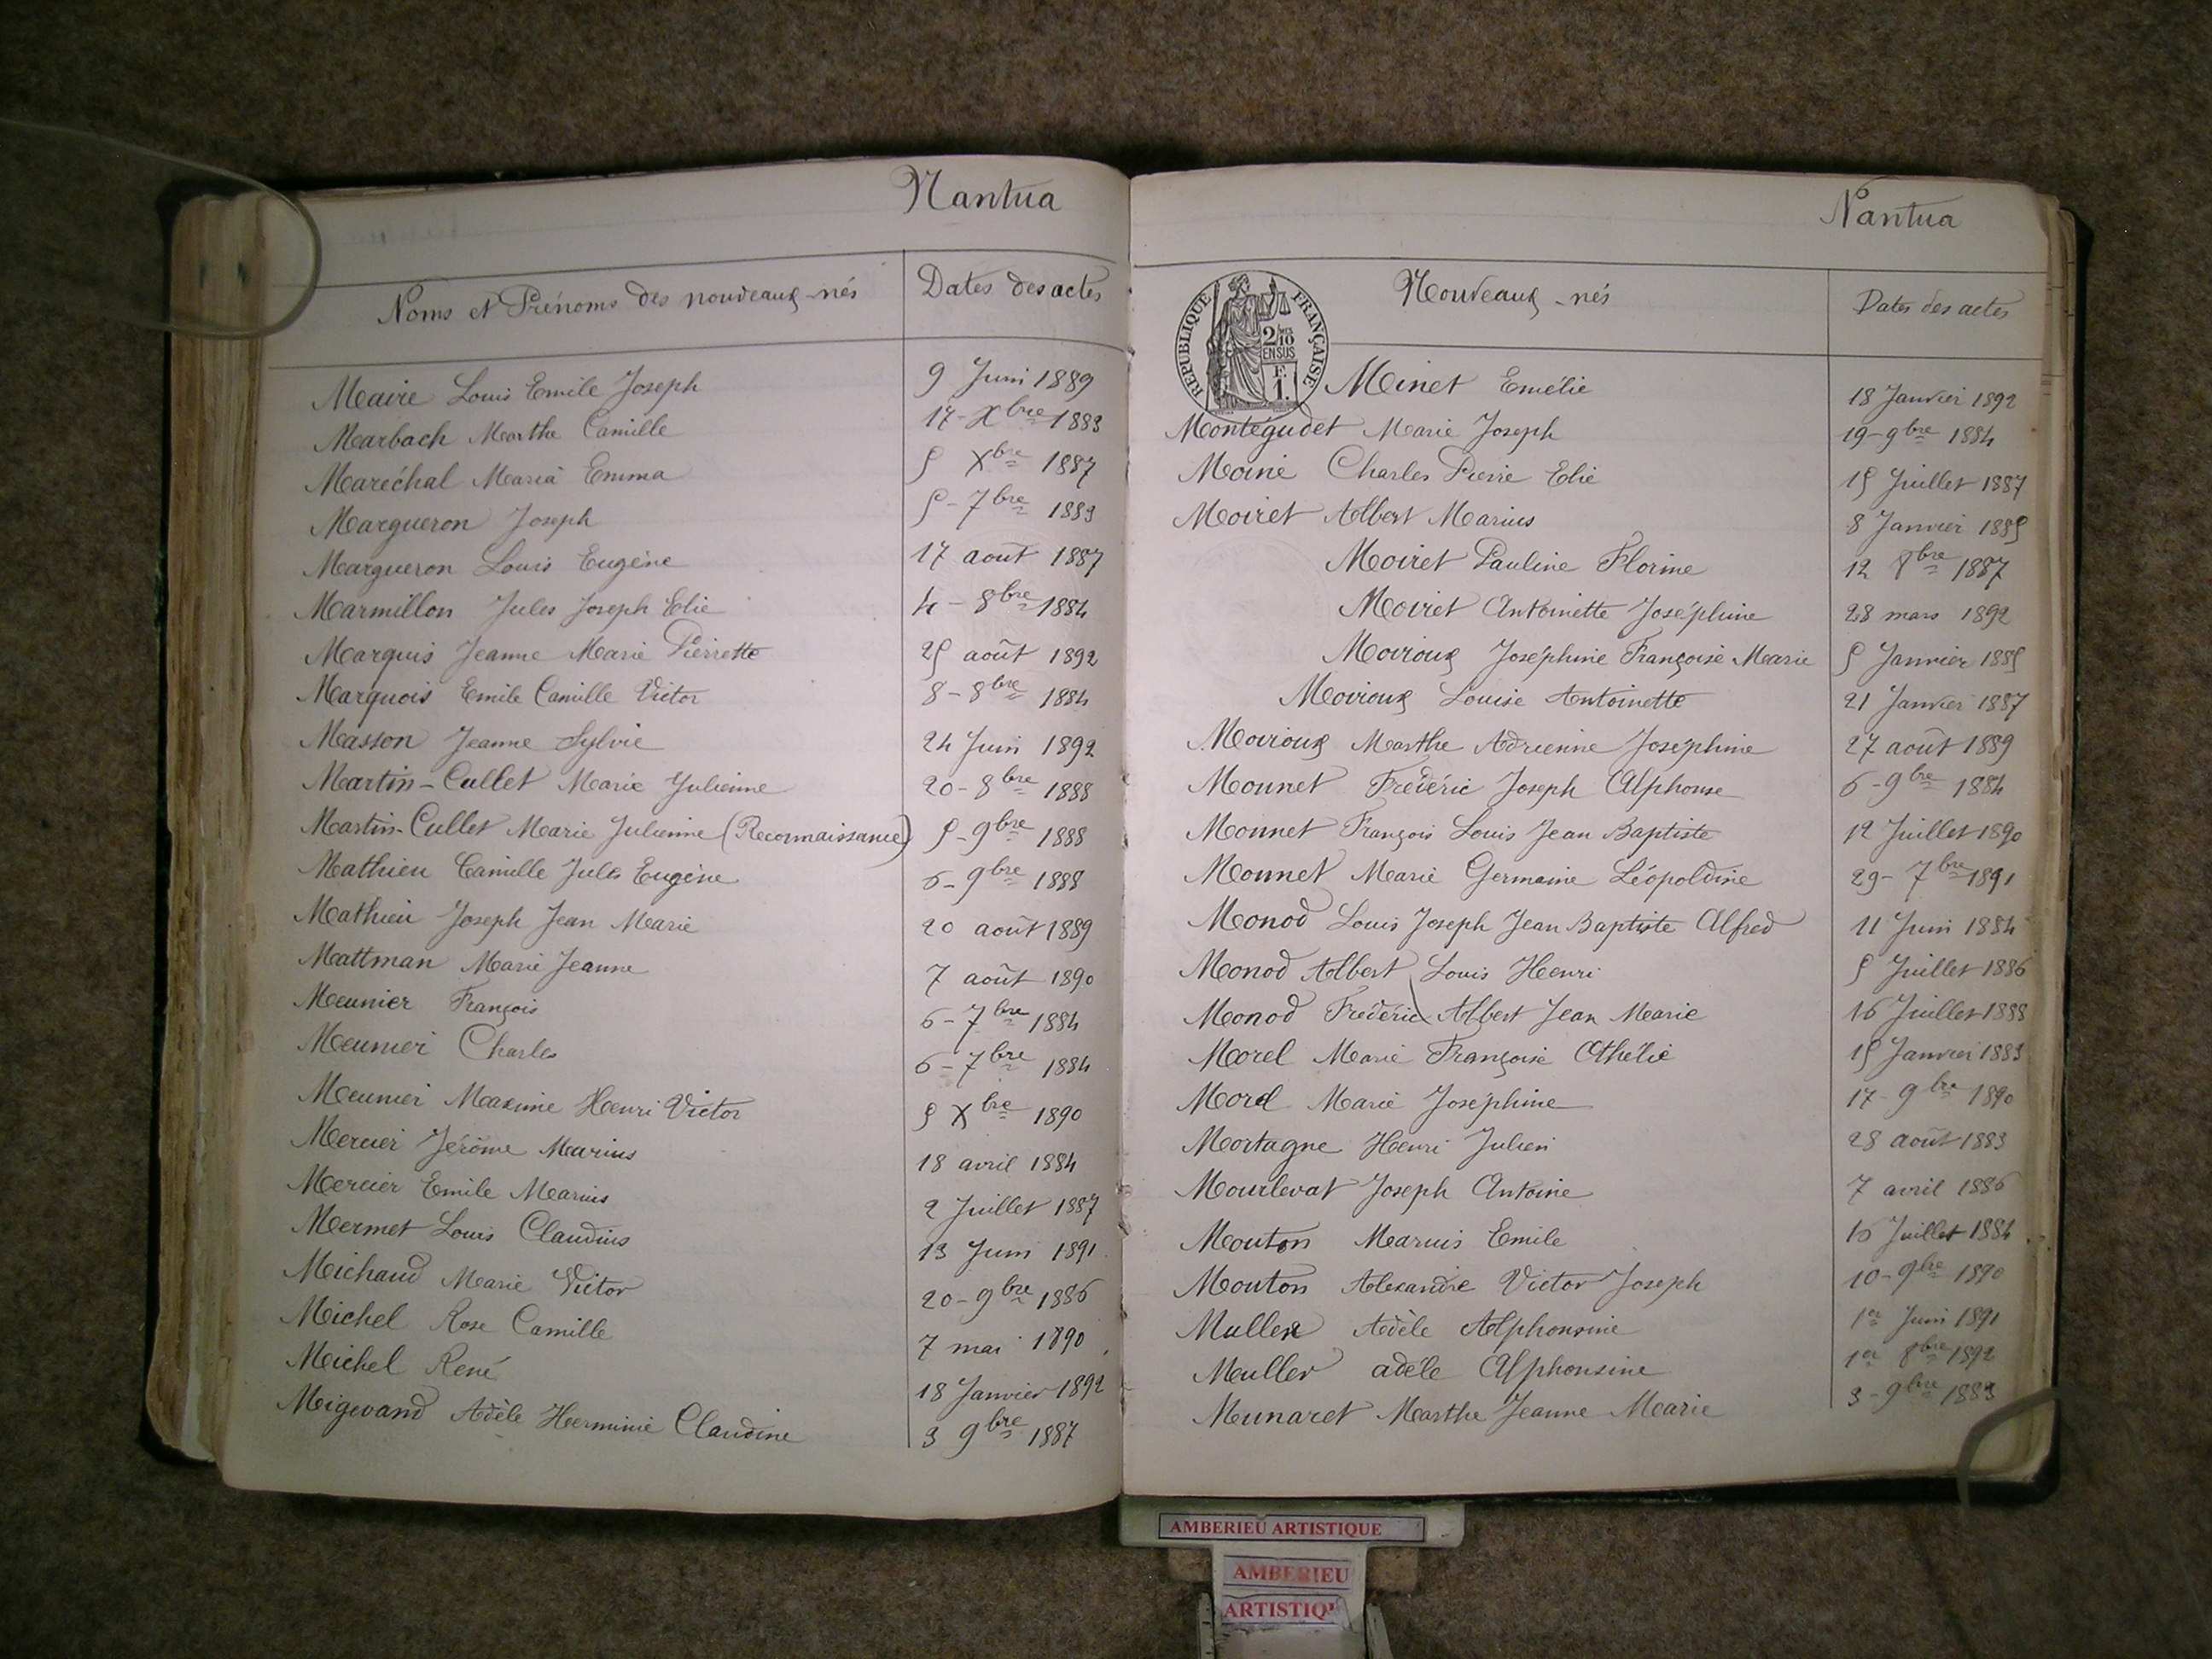 Nantua
Noms et Prénoms des nouveaux-nés Dates des actes
Maire Louis Emile Joseph 9 Juin 1889
Marbach Marthe Camille 17-Xbre 1883
Maréchal Maria Emma 5 Xbre 1887
Margueron Joseph 5-7bre 1883
Margueron Louis Eugène 17 août 1887
Marmillon Jules Joseph Elie 4-8bre 1884
Marquis Jeanne Marie Pierrette 25 août 1892
Marquois Emile Camille Victor 8-8bre 1884
Masson Jeanne Sylvie 24 Juin 1892
Martin-Cullet Marie Julienne 20-8bre 1888
Martin-Cullet Marie Julienne (Reconnaissance) 5-9bre 1888
Mathieu Camille Jules Eugène 6-9bre 1888
Mathieu Joseph Jean Marie 20 août 1889
Mattman Marie Jeanne 7 août 1890
Meunier François 6-7bre 1884
Meunier Charles 6-7bre 1884
Meunier Maxime Henri Victor 5 Xbre 1890
Mercier Jérôme Marius 18 avril 1884
Mercier Emile Marius 2 Juillet 1887
Mermet Louis Claudius 13 Juin 1891
Michaud Marie Victor 20-9bre 1886
Michel Rose Camille 7 mai 1890
Michel René 18 Janvier 1892
Migevand Adèle Herminie Claudine 3 9bre 1887
Nantua
Nouveaux-nés Dates des actes
REPUBLIQUE FRANÇAISE
2/10 EN SUS
F. 1.
Minet Emélie 18 Janvier 1892
Montégudet Marie Joseph 19-9bre 1884
Moine Charles Pierre Elie 15 Juillet 1887
Moiret Albert Marius 8 Janvier 1885
Moiret Pauline Florine 12 8bre 1887
Moiret Antoinette Joséphine 28 mars 1892
Moiroux Joséphine Françoise Marie 5 Janvier 1885
Moiroux Louise Antoinette 21 Janvier 1887
Moiroux Marthe Adrienne Joséphine 27 août 1889
Monnet Fréderic Joseph Alphonse 6-9bre 1884
Monnet François Louis Jean Baptiste 12 Juillet 1890
Monnet Marie Germaine Léopoldine 29-7bre 1891
Monod Louis Joseph Jean Baptiste Alfred 11 Juin 1884
Monod Albert Louis Henri 5 Juillet 1886
Monod Fréderic Albert Jean Marie 16 Juillet 1888
Morel Marie Françoise Othélie 15 Janvier 1883
Morel Marie Joséphine 17-9bre 1890
Mortagne Henri Julien 28 août 1883
Mourlevat Joseph Antoine 7 avril 1886
Mouton Marius Emile 16 Juillet 1884
Mouton Alexandre Victor Joseph 10-9bre 1890
Muller Adèle Alphonsine 1er Juin 1891
Muller adèle Alphonsine 1er 8bre 1892
Munaret Marthe Jeanne Marie 3-9bre 1883
AMBERIEU ARTISTIQUE
AMBERIEU
ARTISTIQU